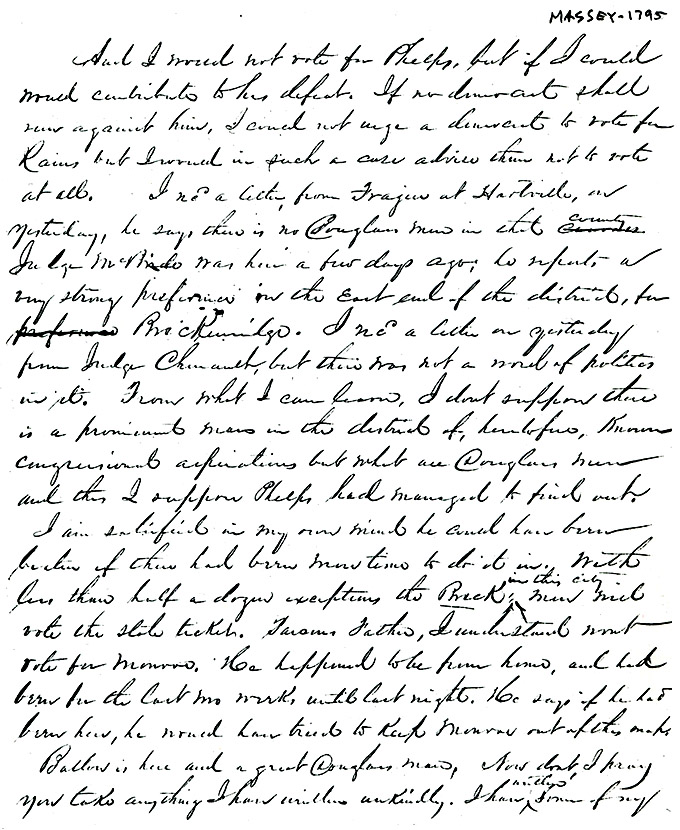 MASSEY-1795
And I would not vote for Phelps, but if I could
would contribute to his defeat. If no democrat shall
run against him, I could not urge a democrat to vote for
Rains but I would in such a case advise them not to vote
at all. I recd a letter, from Frazier at Hartville, on
yesterday, he says there is no Douglass men in that county
Judge McBride was here a few days ago; he reports a
very strong preference in the East end of the district, for
preference Breckenridge. I recd a letter on yesterday
from Judge Chenault, but there was not a word of politics
in it. From what I can learn, I dont suppose there
is a prominent man in the district of, heretofore, Known
congressional aspirations but what are Douglass men
and this I suppose Phelps had managed to find out.
I am satisfied in my own mind he could have been
beaten if there had been more time to do it in. With
less than half a dozen exceptions the Breck: men in this city will
vote the state ticket. Parsons Father, I understand wont
vote for Monroe. He happened to be from home, and had
been for the last two weeks until last night. He says if he had
been here, he would have tried to Keep Monroe out of this
Ballow is here and a great Douglass man, Now dont I pray
you take anything I have written unkindly. I have, some of my